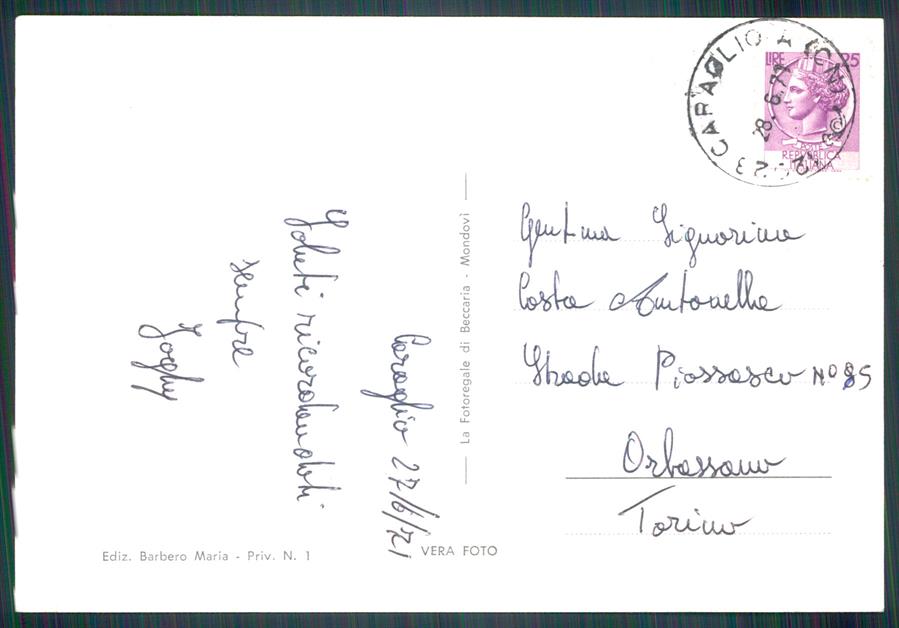 Caraglio 27/6/71
Saluti ricordandoti
sempre
CARAGLIO A (CN)
28.6.71
LIRE 25
POSTE
REPUBBLICA
ITALIANA
Gent.ma Signorina
Costa Antonella
Strada Piossasco N° 85
Orbassano
Torino
La Fotoregale di Beccaria - Mondovì
Ediz. Barbero Maria - Priv. N. 1
VERA FOTO